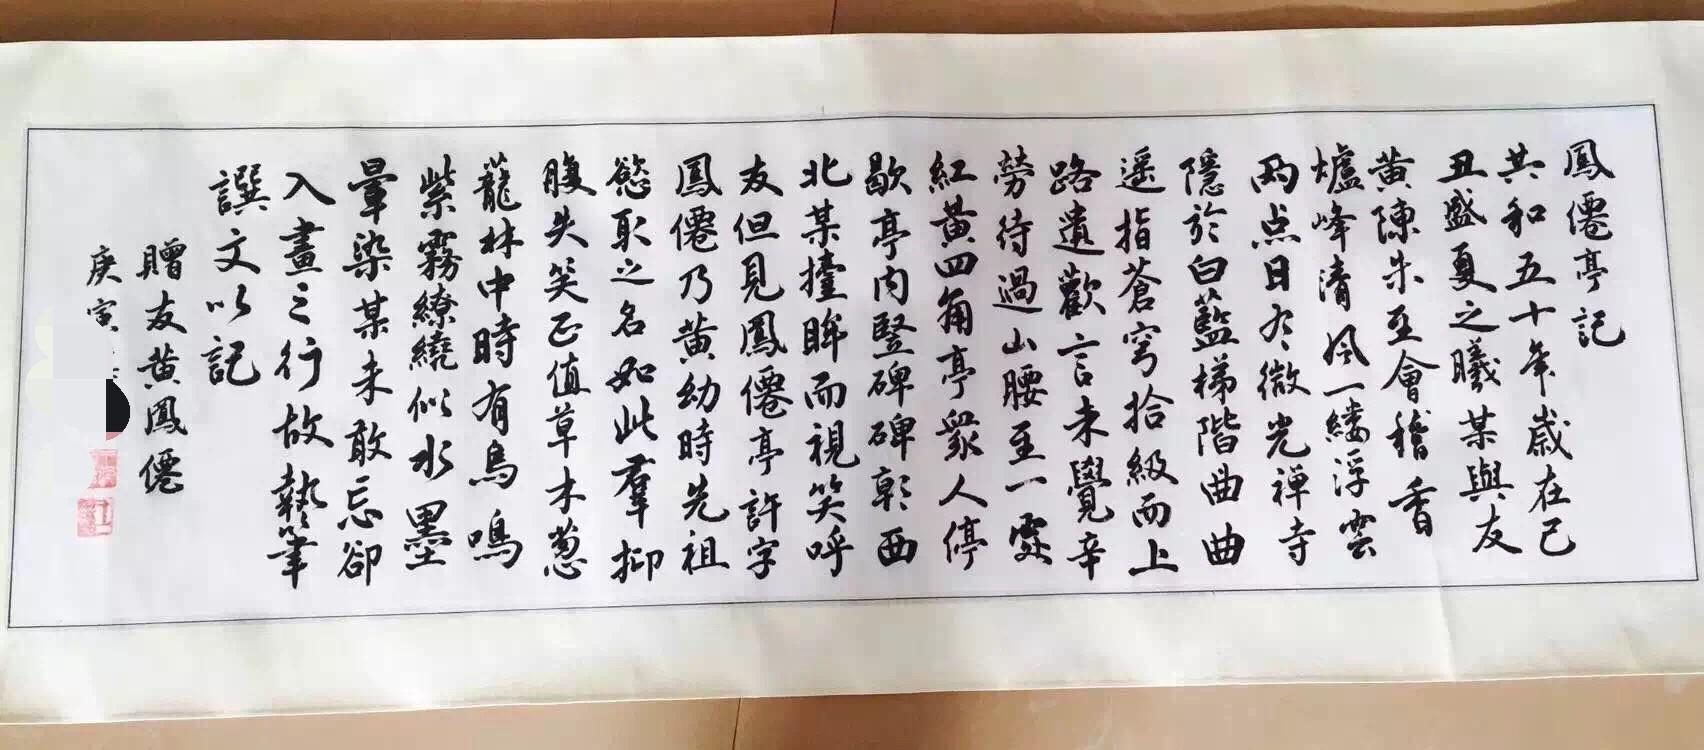 鳳僊亭記
共和五十年歲在己
丑盛夏之曦某與友
黃陳朱至會稽香
爐峰清風一縷浮雲
兩点日冇微光禅寺
隱於白藍梯階曲曲
遥指蒼穹拾級而上
路遺歡言未覺辛
勞待過山腰至一處
紅黃四角亭眾人停
歇亭内豎碑碑彰西
北某擡眸而視笑呼
友但見鳳僊亭許字
鳳僊乃黃幼時先祖
慾取之名如此羣抑
腹失笑正值草木葱
蘢林中時有鳥鳴
紫霧繚繞似水墨
暈染某未敢忘卻
入畫之行故執筆
譔文以記
贈友黃鳳僊
庚寅